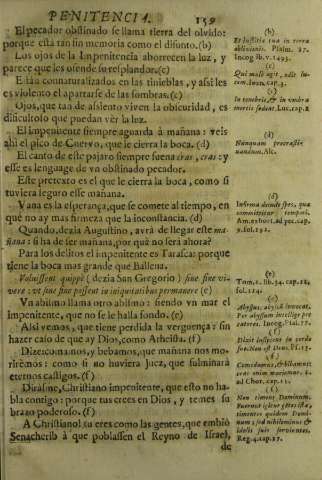 PENITENCIA. 159
El pecador obstinado se llama tierra del olvido:
porque està tan sin memoria como el difunto.(b)
Los ojos de la Impenitencia aborrecen la luz, y
parece que les ofende su resplandor.(c)
Estàn connaturalizados en las tinieblas, y assi les
es violento el apartarse de las sombras.(c)
Ojos, que tan de assiento viven la obscuridad, es
dificultoso que puedan vèr la luz.
El impenitente siempre aguarda à mañana: veis
ahi el pico de Cuervo, que le cierra la boca. (d)
El canto de este pajaro siempre suena cras, cras: y
esse es lenguage de vn obstinado pecador.
Este pretexto es el que le cierra la boca, como si
tuviera seguro esse mañana.
Vana es la esperança, que se comete al tiempo, en
què no ay mas firmeza que la inconstancia. (d)
Quando, dezia Augustino, avrà de llegar este ma
ñana: si ha de ser mañana, por què no serà ahora?
Para los delitos el impenitente es Tarasca: porque
tiene la boca mas grande que Ballena.
Voluissent quippè (dezia San Gregorio) sine fine vi-
vere: vt sine fine possent in iniquitatibus permanere (e)
Vn abismo llama otro abismo: siendo vn mar el
Impenitente, que no se le halla fondo. (e)
Assi vemos, que tiene perdida la verguença: sin
hazer caso de que ay Dios, como Atheista. (f)
Dize: comamos, y bebamos, que mañana nos mo-
rirèmos: como si no huviera Juez, que fulminarà
eternos castigos. (f)
Dirasme, Christiano impenitente, que esto no ha-
bla contigo: porque tus crees en Dios, y temes su
brazo poderoso. (f)
A Christiano! tu eres como las gentes, que embiò
Senacherib à que poblassen el Reyno de Israel,
de
(b)
Et iustitia tua in terra
oblivionis. Psalm. 87.
(c)
Qui malè agit, odit lu-
cem. Ioan. cap.3.
(c)
mortis sedent Luc.cap.1
(d)
Nunquam procrasti-
nandum. Alc.
(d)
(e)
(e)
Abyssus, abyssum invocat.
(f)
Dixit insipiens in corde
suo: Non est Deus. Ps.13.
(f)
Comedamus, & bibamus:
cras enim moriemur. 1.
ad Chor. cap.15.
(f)
Non timent Dominum.
Reg.4.cap.17.